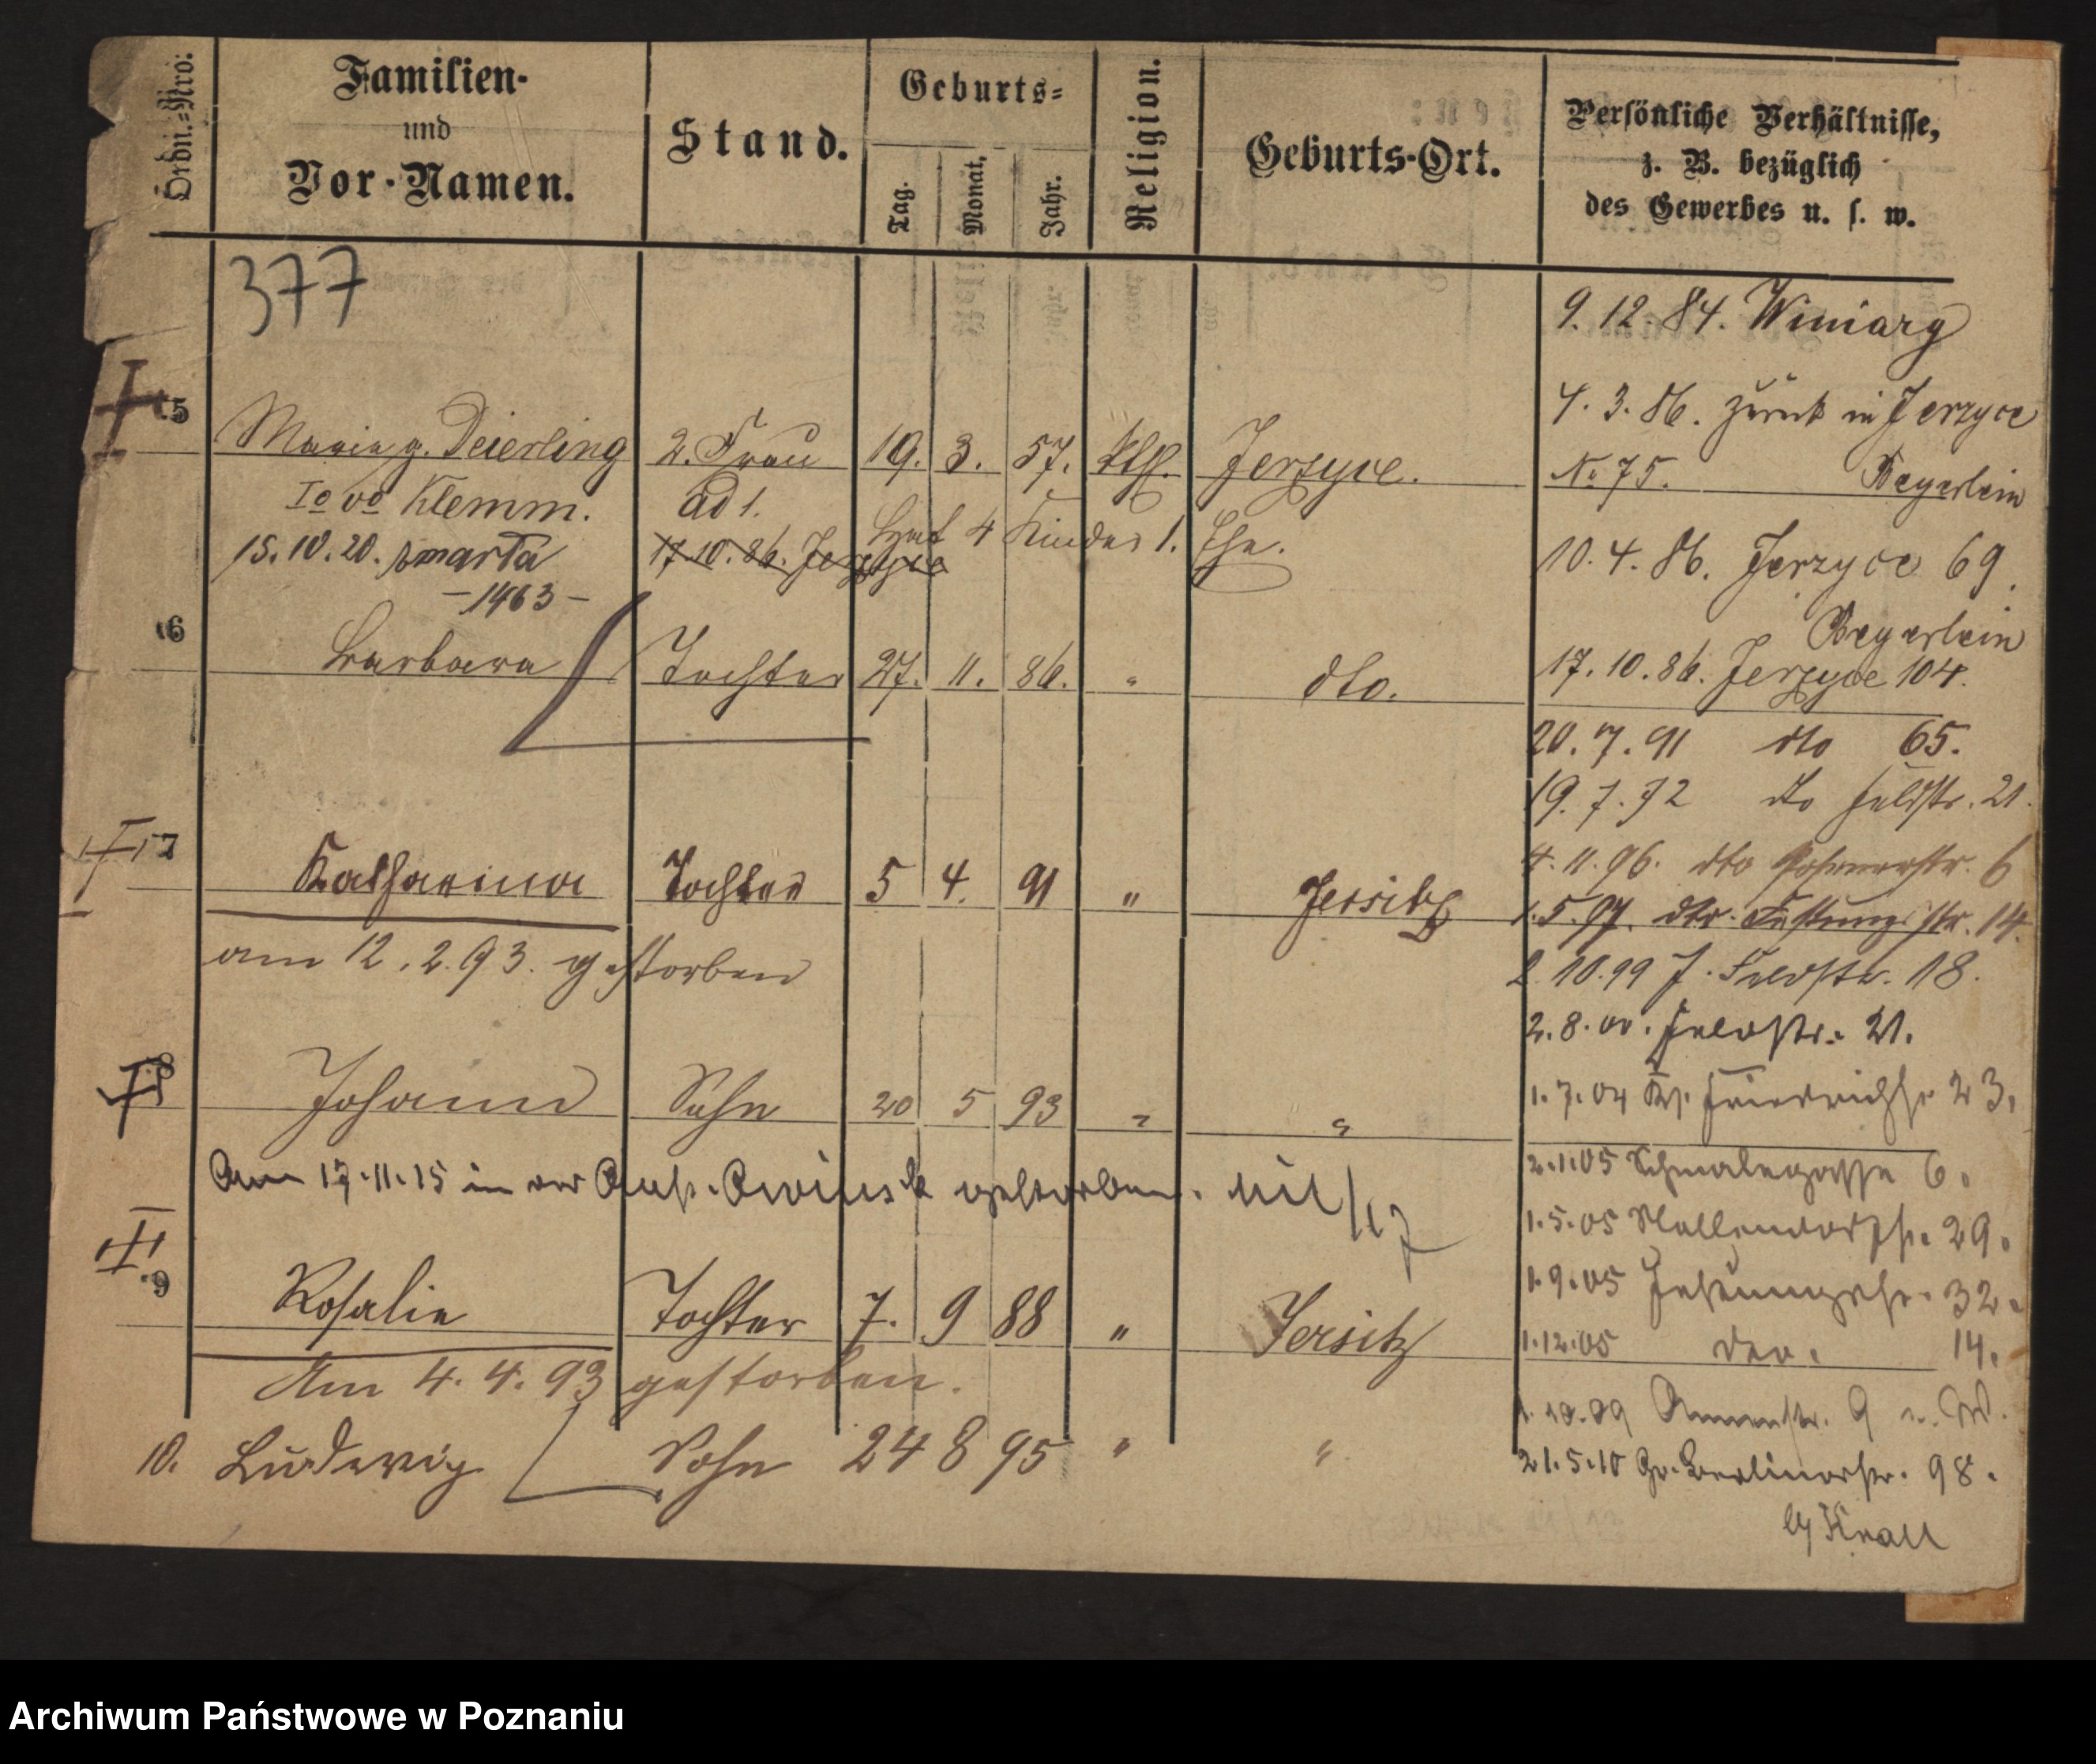 Ordn.-Nro:
Familien-
und
Vor-Namen.
Stand.
Geburts-
Tag.
Monat.
Jahr.
Religion.
Geburts-Ort.
Persönliche Verhältnisse,
z. B. bezüglich
des Gewerbes u. s. w.
377
9. 12. 84. Winiary
4. 3. 86. zurück in Jerzyce
5 Marie g. Deierling 2. Frau 19. 3. 57. kth. Jerzyce. No 75. Beyerlein
Io vo Klemm. ad 1.
Hat 4 Kinder 1. Ehe.
15. 10. 20. smarta 17. 10. 86. Jerzyce 10. 4. 86. Jerzyce 69.
-1463-
Beyerlein
6 Barbara Tochter 27. 11. 86. " dto. 17. 10. 86. Jerzyce 104.
20. 7. 91 dto 65.
19. 7. 92 dto Feldstr. 21.
4. 11. 96. dto 6
7 Katharina Tochter 5 4. 91 " Jersitz 1. 5. 97. dto. Festungsstr. 14.
am 12. 2. 93. gestorben 2. 10. 99 J. Feldstr. 18.
2. 8. 00. Feldstr. 21.
8 Johann Sohn 20 5 93 " " 1. 7. 04 Friedrichstr 23.
Am 17. 11. 15 in der gestorben. 2. 1. 05 Schmalegasse 6.
1. 5. 05 29.
1. 9. 05 Festungsstr. 32.
9 Rosalie Tochter 7. 9 88 " Jersitz 1. 12. 05 dto. 14.
Am 4. 4. 93 gestorben.
1. 10. 09 9
10. Ludwig Sohn 24 8 95 " " 21. 5. 10 Gr. Berlinerstr. 98.
Knall
Archiwum Państwowe w Poznaniu